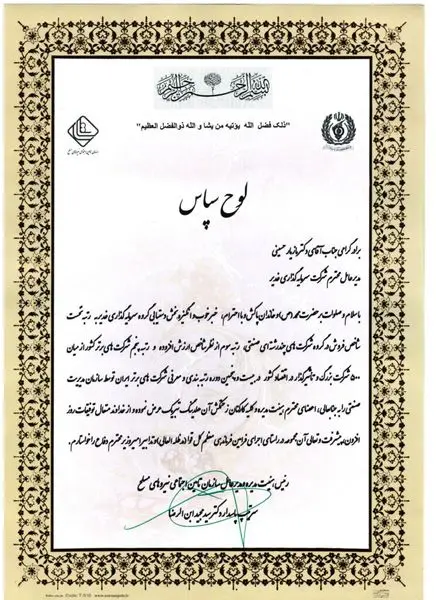 بسم الله الرحمن الرحیم
"ذلک فضل الله یوتیه من یشا و الله ذوالفضل العظیم"
لوح سپاس
برادر گرامی جناب آقای دکتر مازیار حسینی
مدیرعامل محترم شرکت سرمایه گذاری غدیر
با سلام و صلوات بر حضرت محمد (ص) و خاندان پاکش و با احترام، خبر خوب و انگیزه بخش دستیابی گروه سرمایه گذاری غدیر به رتبه نخست
شاخص فروش در گروه شرکت های چند رشته ای صنعتی، رتبه سوم از نظر شاخص ارزش افزوده و رتبه پنجم شرکت های برتر کشور از میان
۵۰۰ شرکت بزرگ و تاثیرگذار در اقتصاد کشور در بیست و پنجمین دوره رتبه بندی و معرفی شرکت های برتر ایران توسط سازمان مدیریت
صنعتی را به جنابعالی، اعضای محترم هیئت مدیره و کلیه کارکنان زحمتکش آن هلدینگ تبریک عرض نموده و از خداوند متعال توفیقات روز
افزون، پیشرفت و تعالی آن مجموعه در راستای اجرای فرامین فرماندهی معظم کل قوا (مدظله العالی) و تدابیر امیر وزیر محترم دفاع را خواستارم.
رئیس هیئت مدیره و مدیرعامل سازمان تامین اجتماعی نیروهای مسلح
سرتیپ پاسدار دکتر سید مجید ابن الرضا